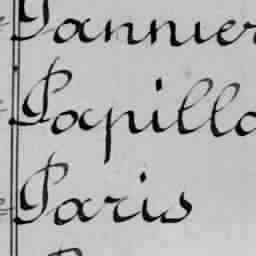 Pannier
Papillo
Paris